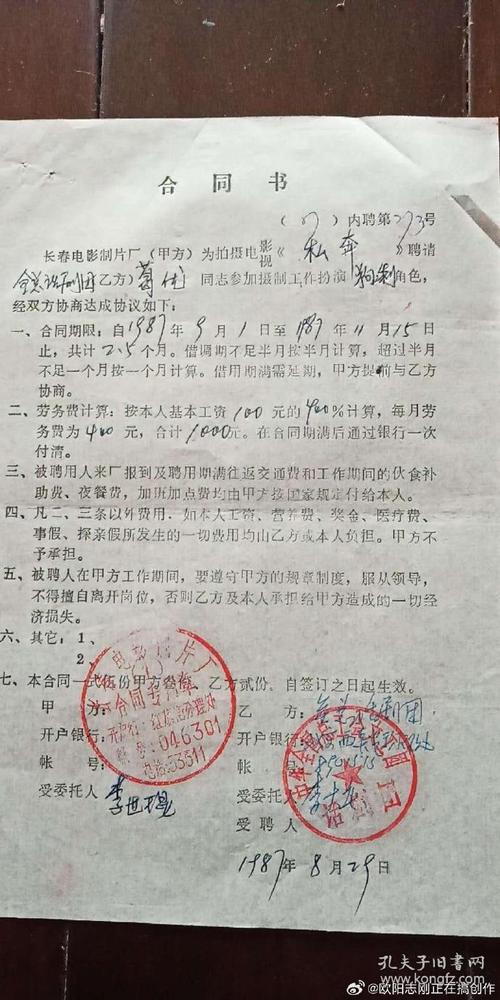 合同书
(87)内聘第273号
长春电影制片厂(甲方)为拍摄电影视《私奔》聘请
全总话剧团乙方)葛优同志参加摄制工作扮演 角色,
经双方协商达成协议如下:
一、合同期限:自1987年9月1日至1987年11月15日
止,共计2.5个月。借调期不足半月按半月计算,超过半月
不足一个月按一个月计算。借用期满需延期,甲方提前与乙方
协商。
二、劳务费计算:按本人基本工资100元的400%计算,每月劳
务费为400元,合计1000元。在合同期满后通过银行一次
付清。
三、被聘用人来厂报到及聘用期满往返交通费和工作期间的伙食补
助费、夜餐费,加班加点费均由甲方按国家规定付给本人。
四、凡二、三条以外费用.如本人工资、营养费、奖金、医疗费、
事假、探亲假所发生的一切费用均由乙方或本人负担。甲方不
予承担。
五、被聘人在甲方工作期间,要遵守甲方的规章制度,服从领导,
不得擅自离开岗位,否则乙方及本人承担给甲方造成的一切经
济损失。
六、其它:1、
2、
七、本合同一式伍份甲方叁份,乙方贰份。自签订之日起生效。
甲方:
乙方:全总话剧团
开户银行
开户银行:
帐号:
帐号:
受委托人 李世
受委托人
受聘人
1987年8月29日
电影制片厂
合同专用章
046301
电话:53511
话剧团
孔夫子旧书网
www.kongfz.com
@欧阳志刚正在搞创作